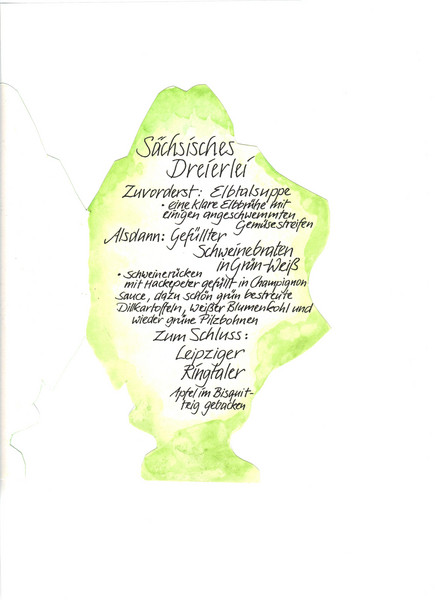 Sächsisches
Dreierlei
Zuvorderst: Elbtalsuppe
• eine klare Elbbrühe mit
einigen angeschwemmten
Gemüsestreifen
Alsdann: Gefüllter
Schweinebraten
in Grün-Weiß
• Schweinerücken
mit Hackepeter gefüllt in Champignon
sauce, dazu schön grün bestreute
Dillkartoffeln, weißer Blumenkohl und
wieder grüne Pilzbohnen
Zum Schluss:
Leipziger
Ringtaler
Apfel im Bisquit-
teig gebacken